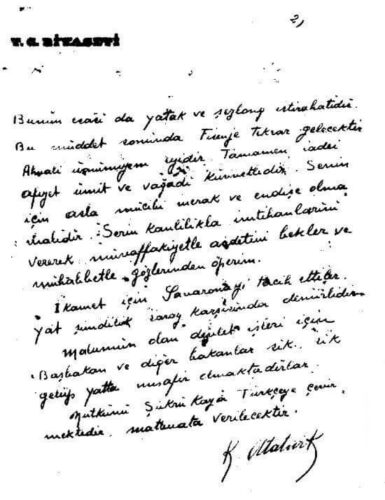 2)
T. C. RİYASETİ
Bunun esası da yatak ve şezlong istirahatıdır.
Bu müddet sonunda Fisenje tekrar gelecektir
Ahvali umumiyem iyidir. Tamamen iadei
afiyet ümit ve vaadi kuvvetlidir. Senin
için asla mucibi merak ve endişe olma
malıdır. Serin kanlılıkla imtihanlarını
vererek muvaffakiyetle avdetini bekler ve
muhabbetle gözlerinden öperim.
İkamet için Savaronayı tercih ettiler.
Yat şimdilik saray karşısında demirlidir.
Malumun olan devlet işleri için
Başbakan ve diğer bakanlar sık, sık
gelip yatta misafir olmaktadırlar.
Nutkunu Şükrü Kaya Türkçeye çevir,
mektedir, matbuata verilecektir.
K. Atatürk